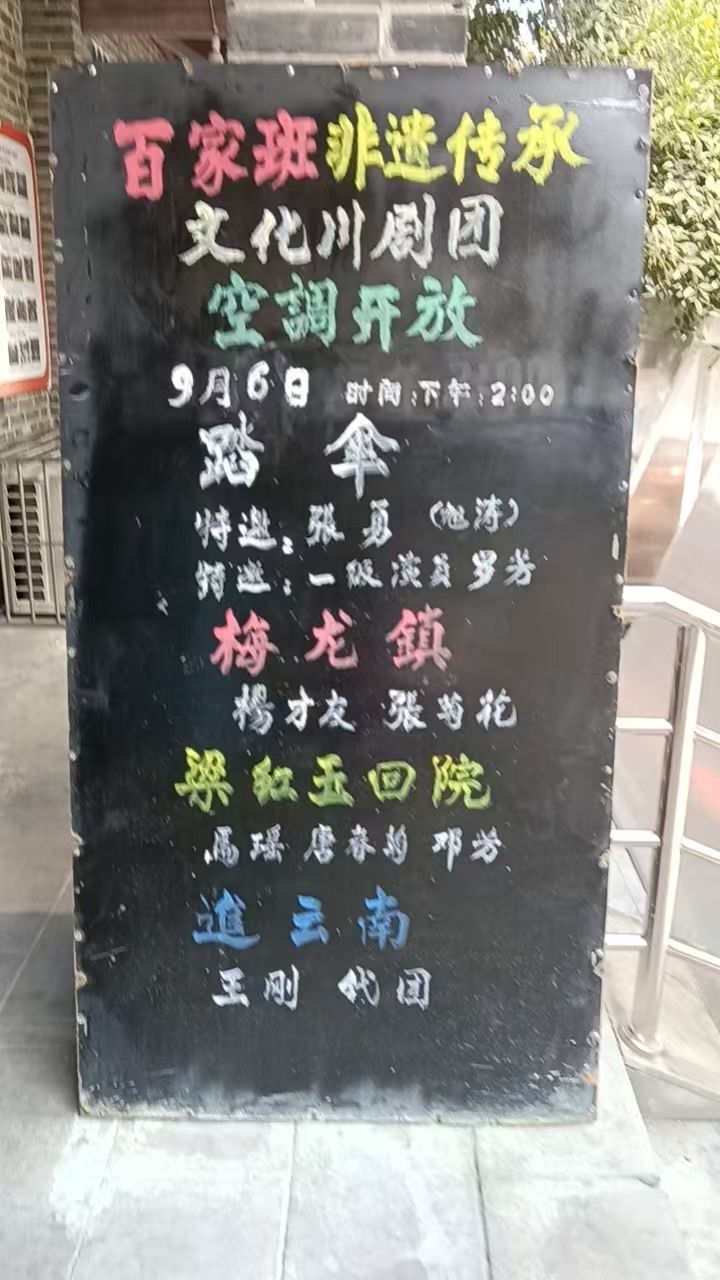 百家班非遗传承
文化川剧团
空調开放
9月6日 时间:下午:2:00
踏 伞
特邀:张勇
特邀:一级演员罗芳
梅龙鎮
楊才友 張菊花
梁红玉回院
馬瑶 唐春菊 邓芳
進云南
王刚 代团